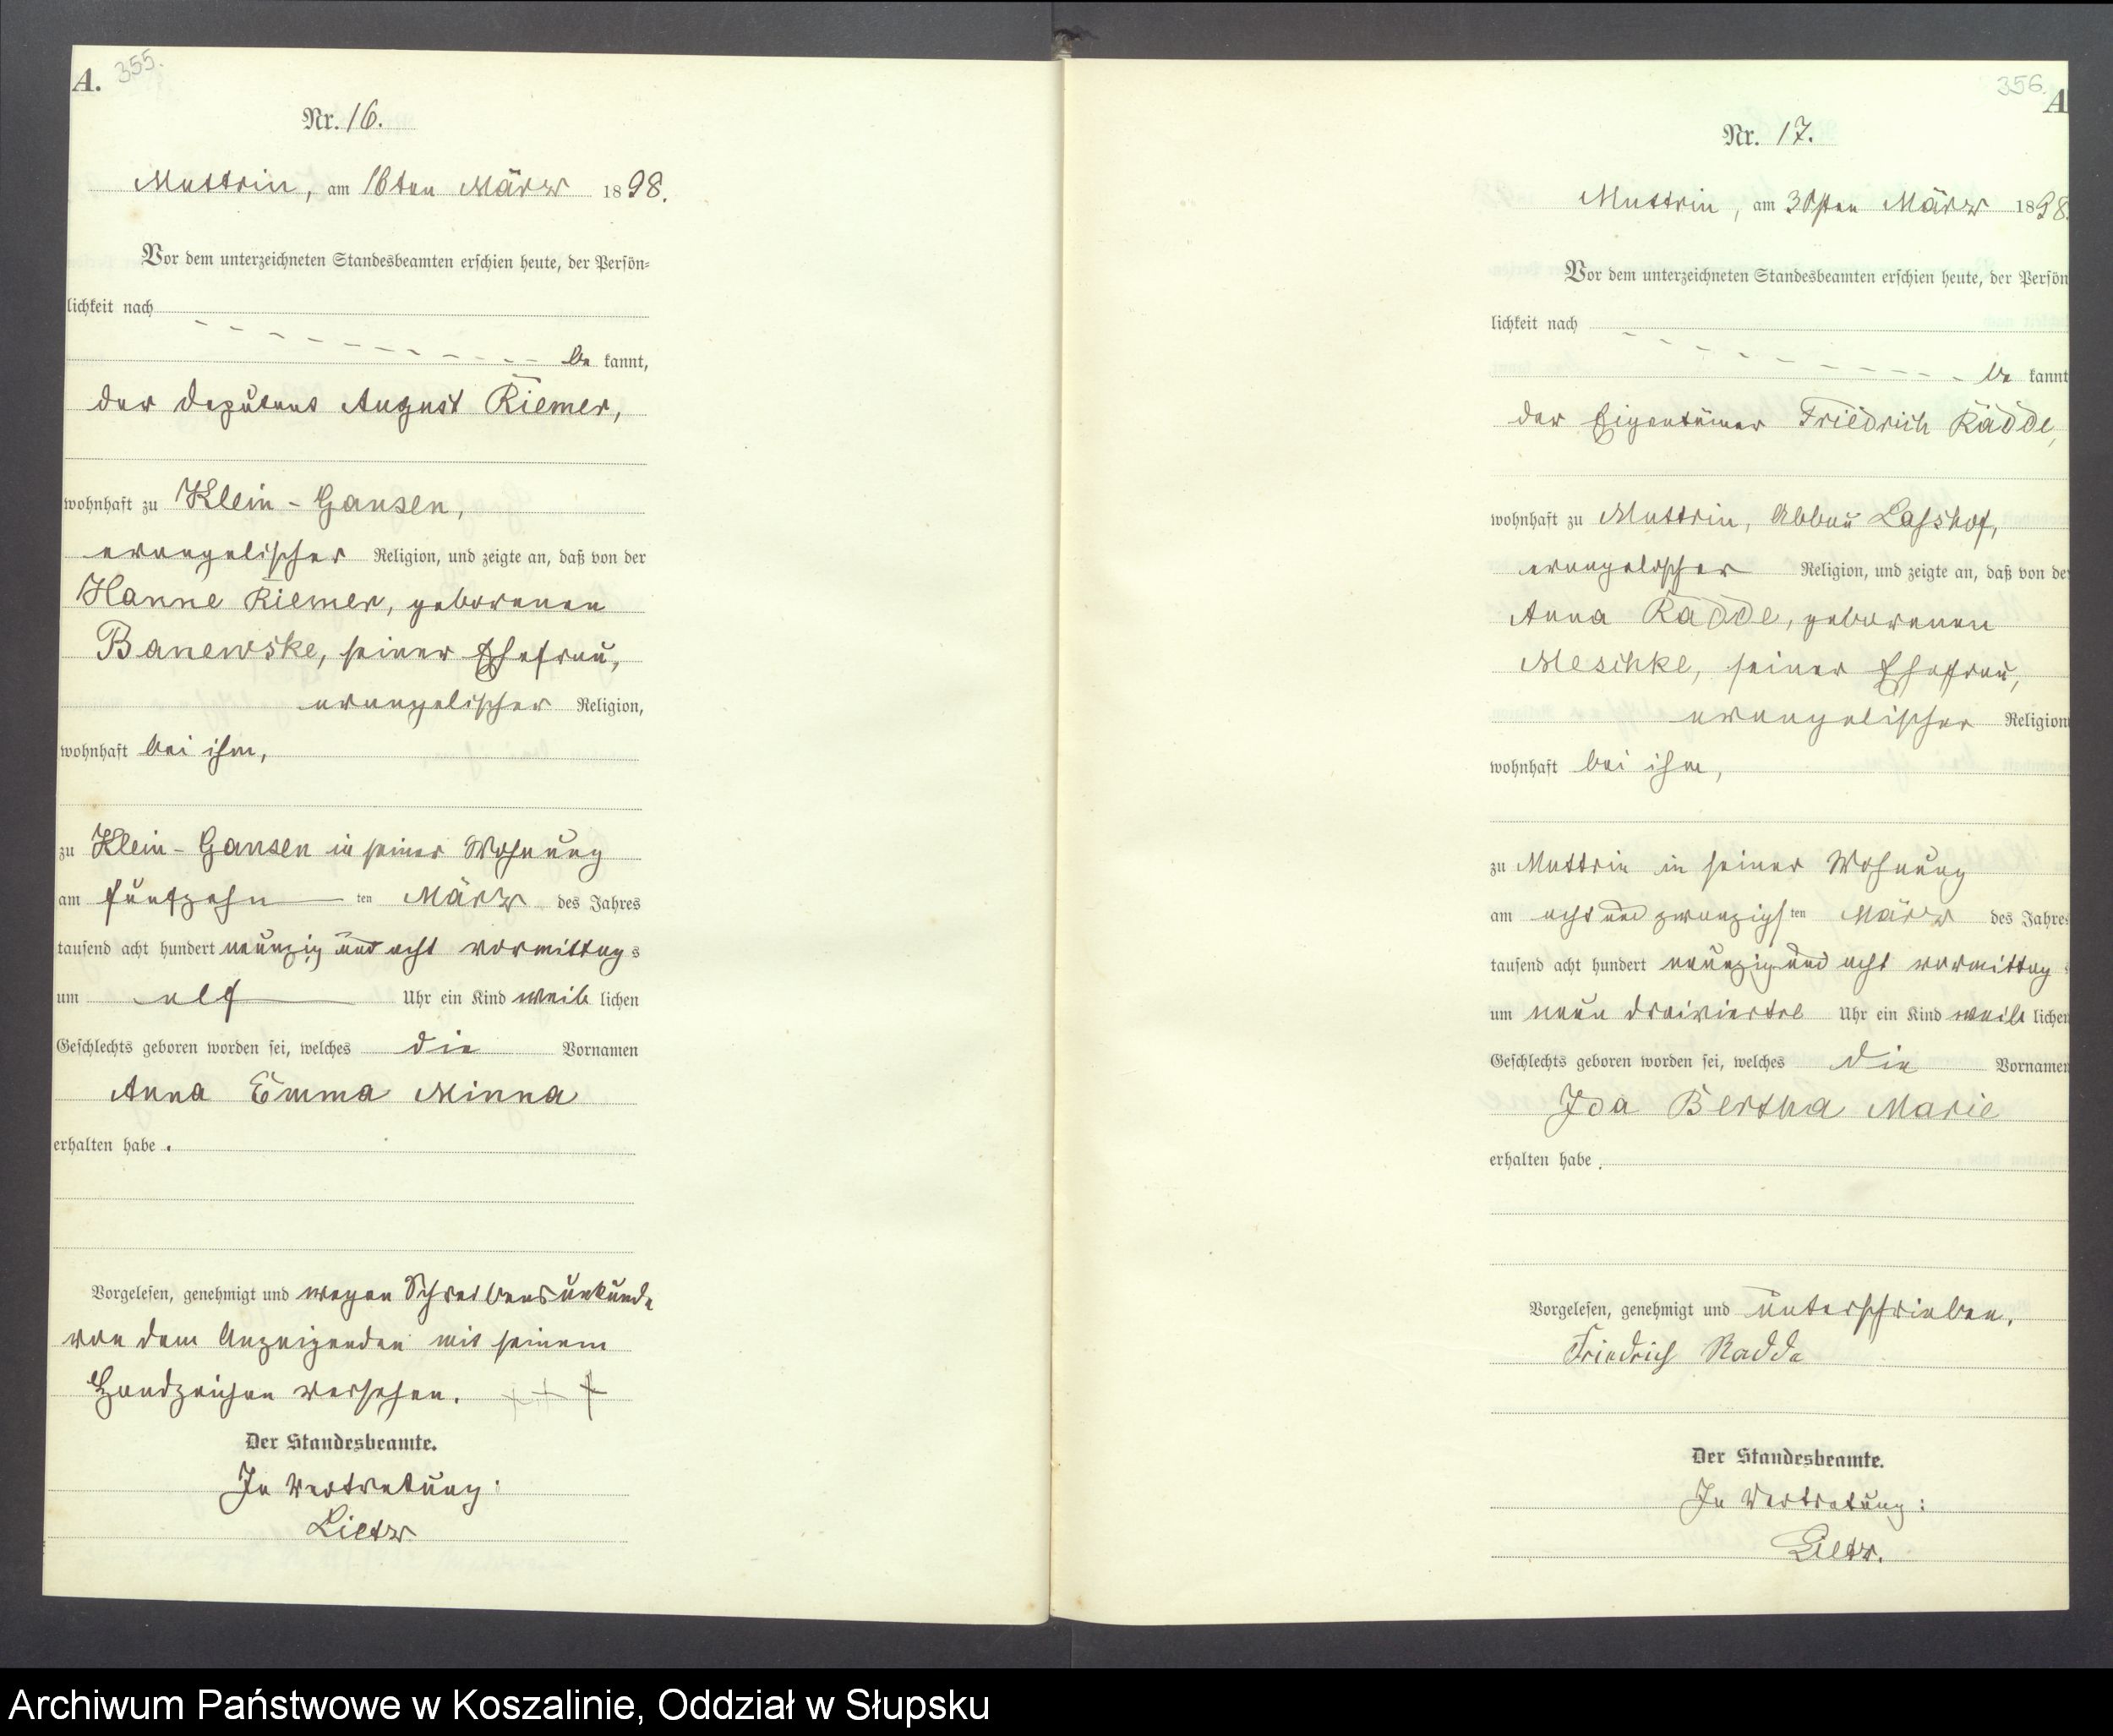 A. 355.
Nr. 16.
Muttrin, am 16ten März 1898.
Vor dem unterzeichneten Standesbeamten erschien heute, der Persön-
lichkeit nach
be kannt,
der Deputant August Riemer,
wohnhaft zu Klein-Gansen,
evangelischer Religion, und zeigte an, daß von der
Hanne Riemer, geborenen
Banewske, seiner Ehefrau,
evangelischer Religion,
wohnhaft bei ihm,
zu Klein-Gansen in seiner Wohnung
am fünfzehn ten März des Jahres
tausend acht hundert neunzig und acht vormittag s
um elf Uhr ein Kind weib lichen
Geschlechts geboren worden sei, welches die Vornamen
Anna Emma Minna
erhalten habe.
Vorgelesen, genehmigt und wegen Schreibensunkunde
von dem Anzeigenden mit seinem
Handzeichen versehen. + + +
Der Standesbeamte.
In Vertretung:
Lietz
356. A
Nr. 17.
Muttrin, am 30sten März 1898.
Vor dem unterzeichneten Standesbeamten erschien heute, der Persön
lichkeit nach
be kannt
der Eigentümer Friedrich Radde,
wohnhaft zu Muttrin, Abbau Lasshof,
evangelischer Religion, und zeigte an, daß von de
Anna Radde, geborenen
Meschke, seiner Ehefrau,
evangelischer Religion
wohnhaft bei ihm,
zu Muttrin in seiner Wohnung
am acht und zwanzigs ten März des Jahres
tausend acht hundert neunzig und acht vormittag s
um neun dreiviertel Uhr ein Kind weib lichen
Geschlechts geboren worden sei, welches die Vornamen
Ida Bertha Marie
erhalten habe.
Vorgelesen, genehmigt und unterschrieben.
Friedrich Radde
Der Standesbeamte.
In Vertretung:
Lietz.
Archiwum Państwowe w Koszalinie, Oddział w Słupsku